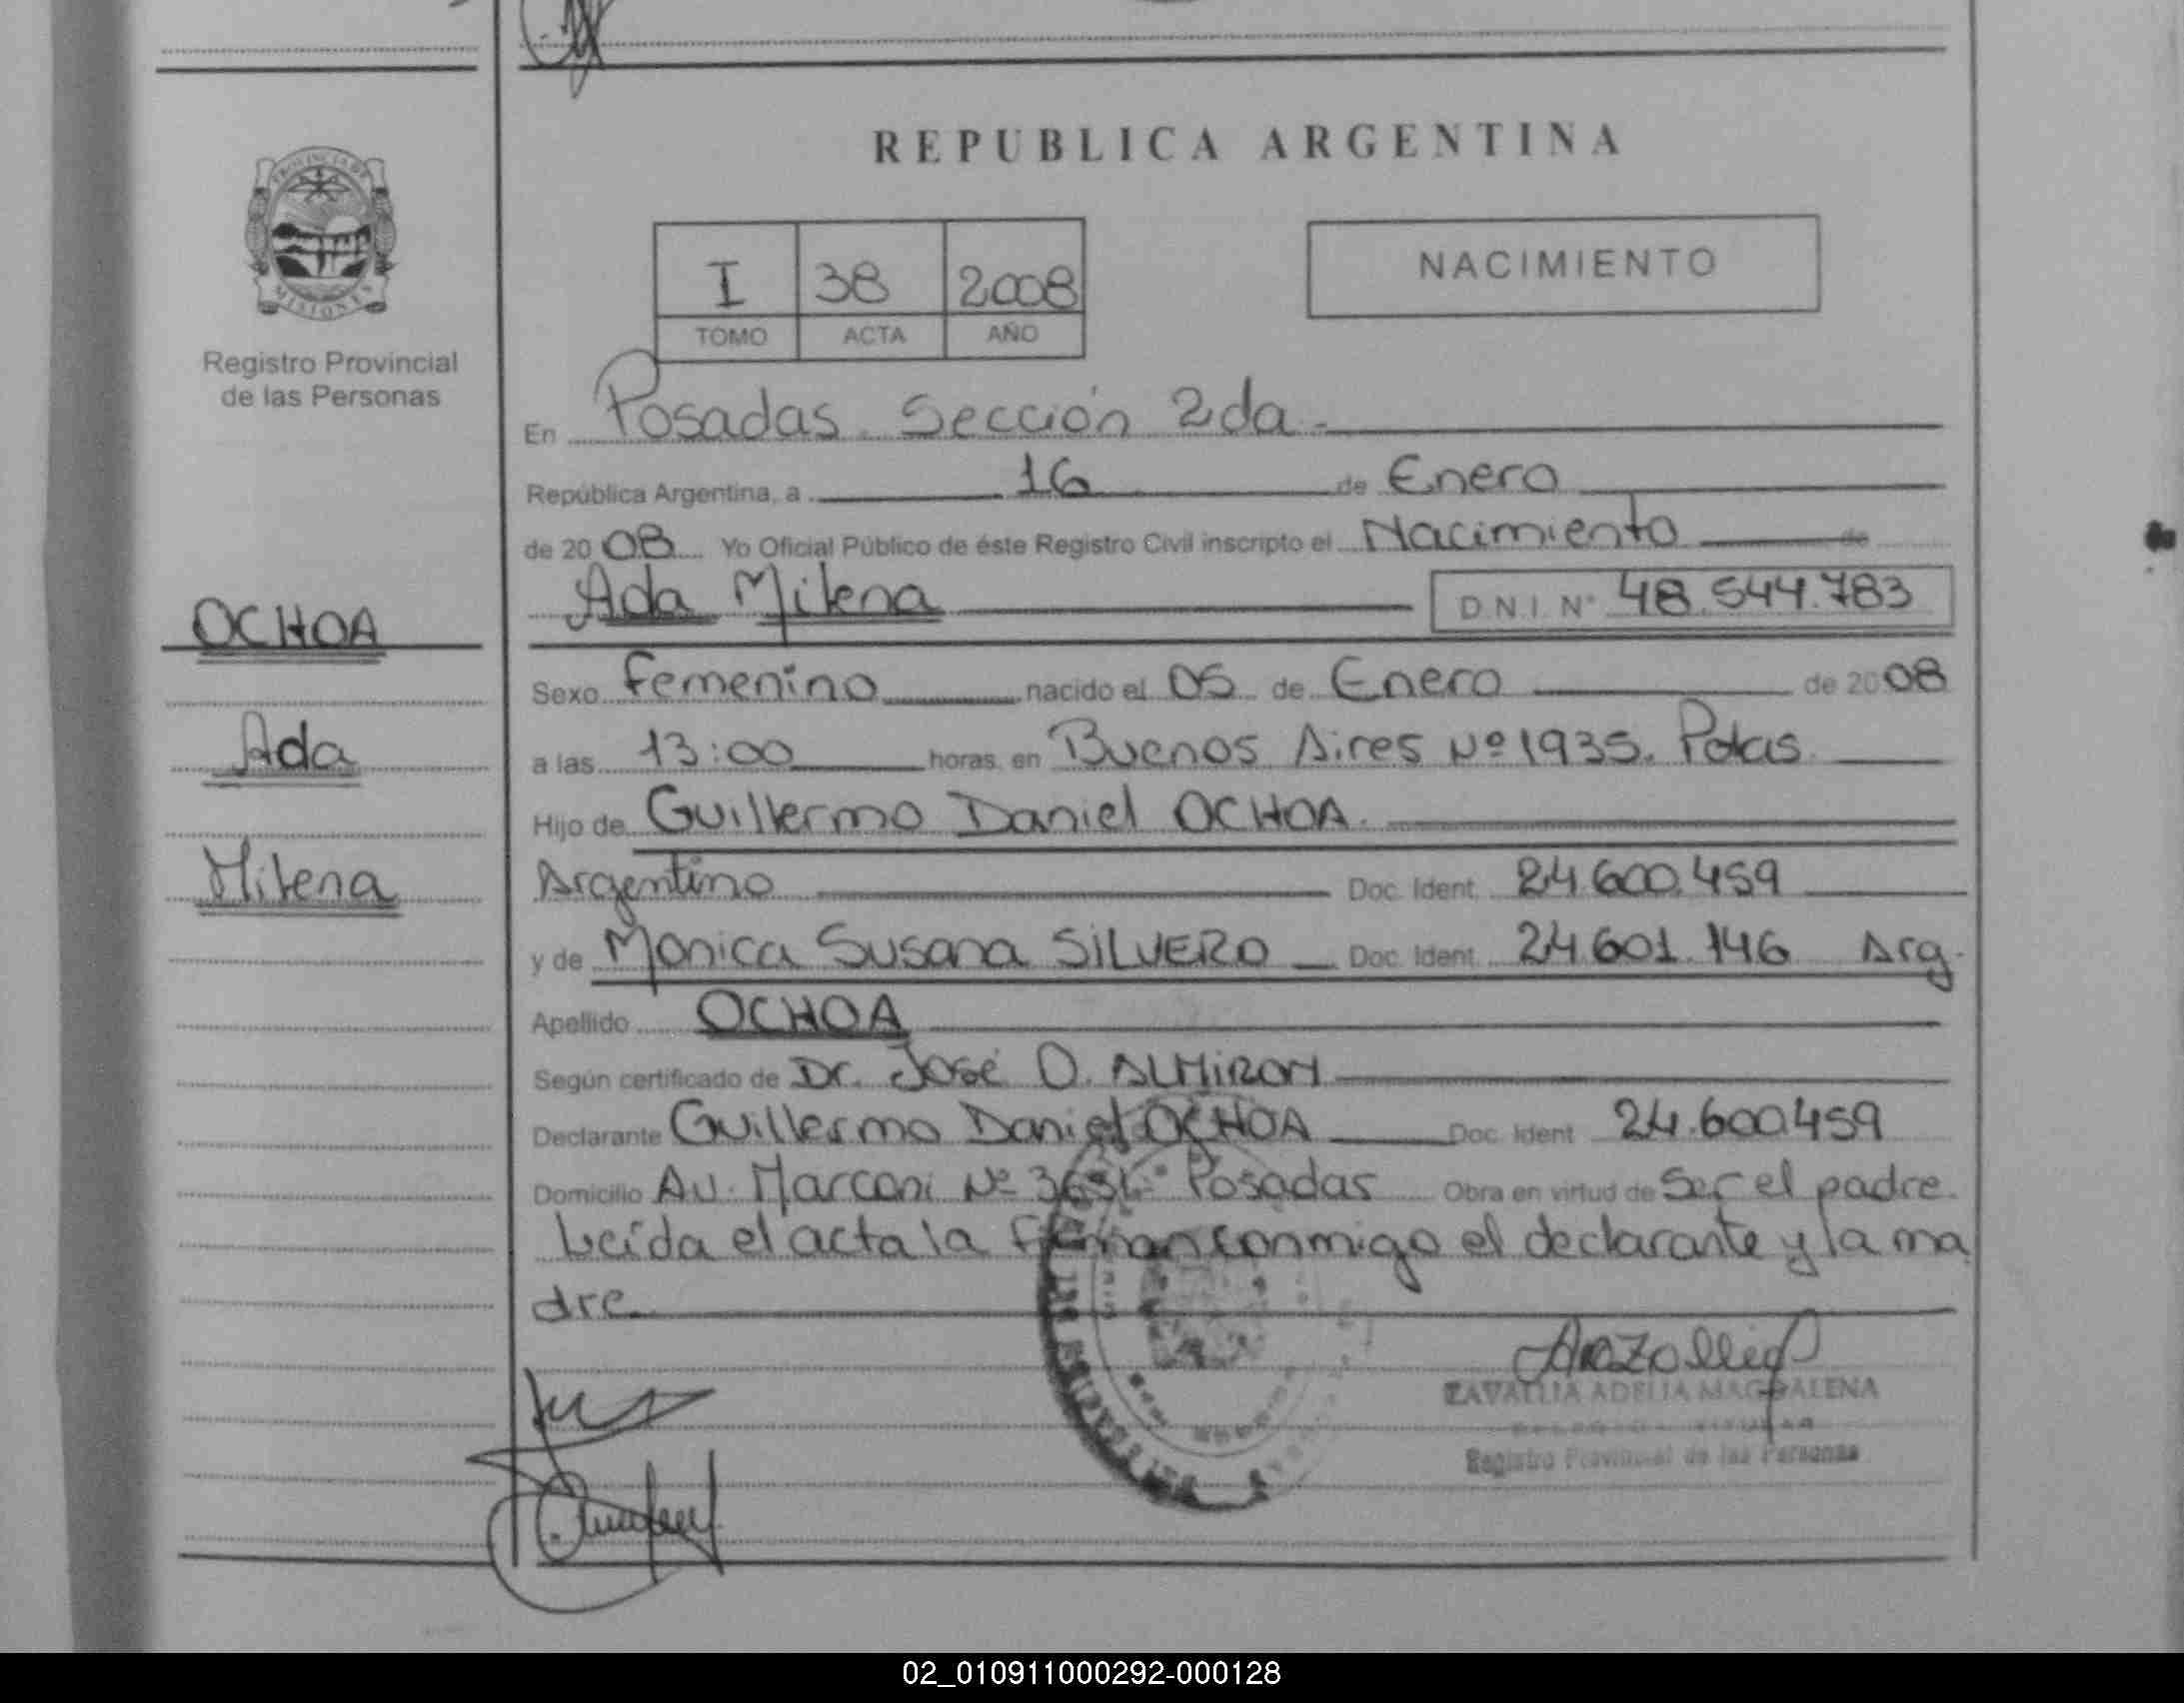 REPUBLICA ARGENTINA
PROVINCIA DE
MISIONES
Registro Provincial
de las Personas
I 38 2008
TOMO ACTA AÑO
NACIMIENTO
En Posadas. Sección 2da.
República Argentina, a 16 de Enero
de 2008 Yo Oficial Público de éste Registro Civil inscripto el Nacimiento de
Ada Milena D.N.I. Nº 48.544.783
OCHOA
Ada
Milena
Sexo Femenino nacido el 05 de Enero de 2008
a las 13:00 horas, en Buenos Aires Nº 1935. Pdas.
Hijo de Guillermo Daniel OCHOA.
Argentino Doc. Ident. 24.600.459
y de Monica Susana SILVERO Doc. Ident. 24.601.146 Arg.
Apellido OCHOA
Según certificado de Dr. José O. ALMIRON
Declarante Guillermo Daniel OCHOA Doc. Ident. 24.600.459
Domicilio Av. Marconi Nº Posadas Obra en virtud de Ser el padre.
Leída el acta la firman conmigo el declarante y la ma
dre.
ZAVALLIA ADELIA MAGDALENA
Registro Provincial de las Personas
02_010911000292-000128